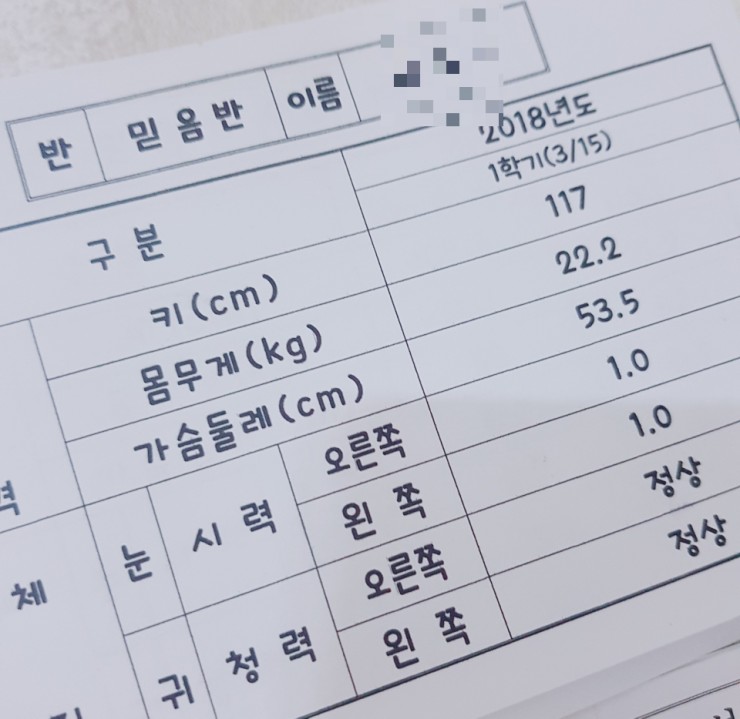 반 믿음반 이름
2018년도
구분 1학기(3/15)
키(cm) 117
몸무게(kg) 22.2
가슴둘레(cm) 53.5
눈 시력 오른쪽 1.0
왼쪽 1.0
체
귀 청력 오른쪽 정상
왼쪽 정상